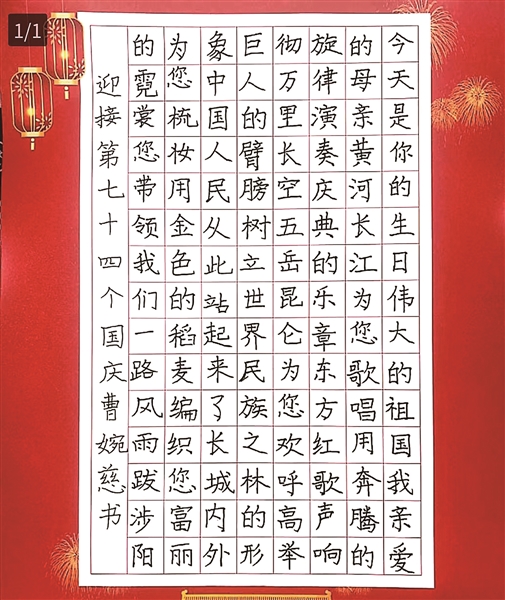 1/1
今天是你的生日伟大的祖国我亲爱
的母亲黄河长江为您歌唱用奔腾的
旋律演奏庆典的乐章东方红歌声响
彻万里长空五岳昆仑为您欢呼高举
巨人的臂膀树立世界民族之林的形
象中国人民从此站起来了长城内外
为您梳妆用金色的稻麦编织您富丽
的霓裳您带领我们一路风雨跋涉阳
迎接第七十四个国庆曹婉慈书